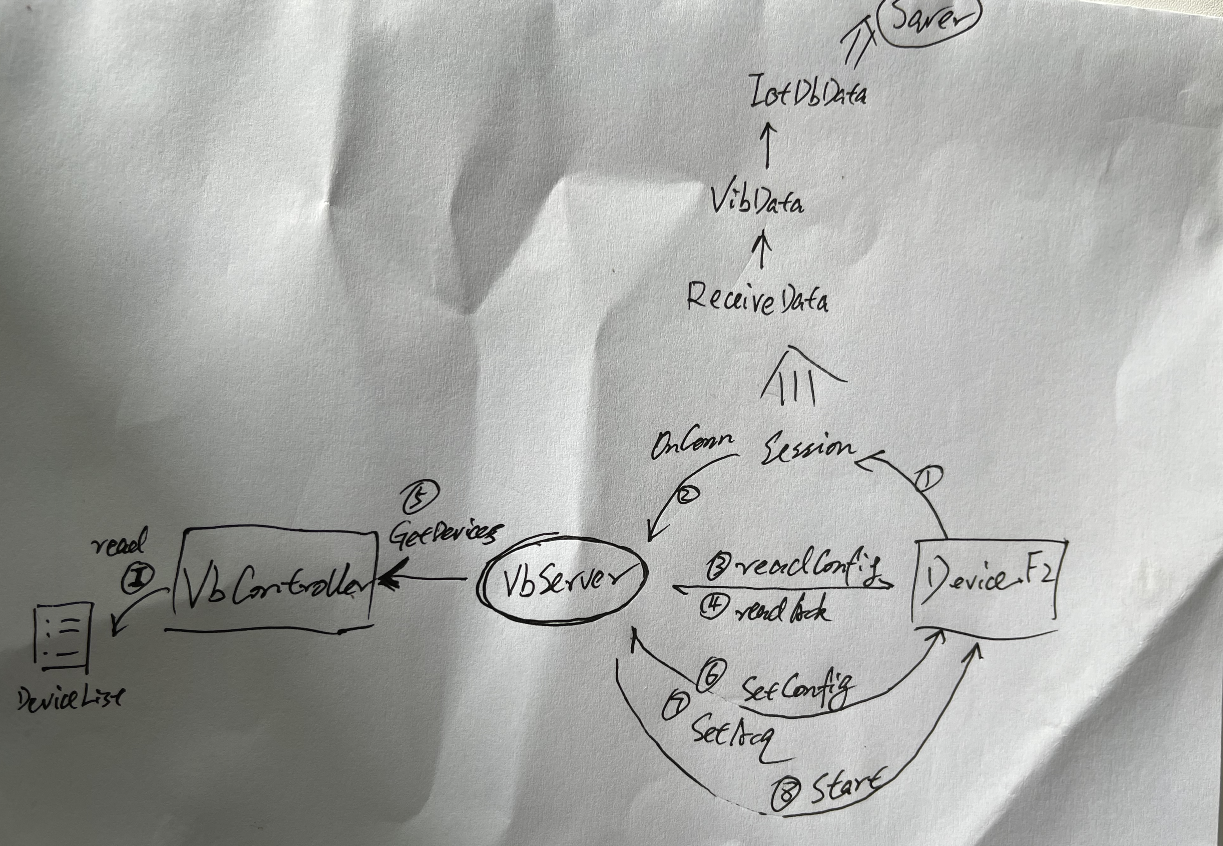 Saver
IotDbData
VibData
ReceiveData
OnConn
Session
①
②
⑤
GetDevices
read
Ⓘ
VbController
VbServer
③ readConfig
④ readAck
Device.F2
DeviceList
⑥ SetConfig
⑦ SetAcq
⑧ Start